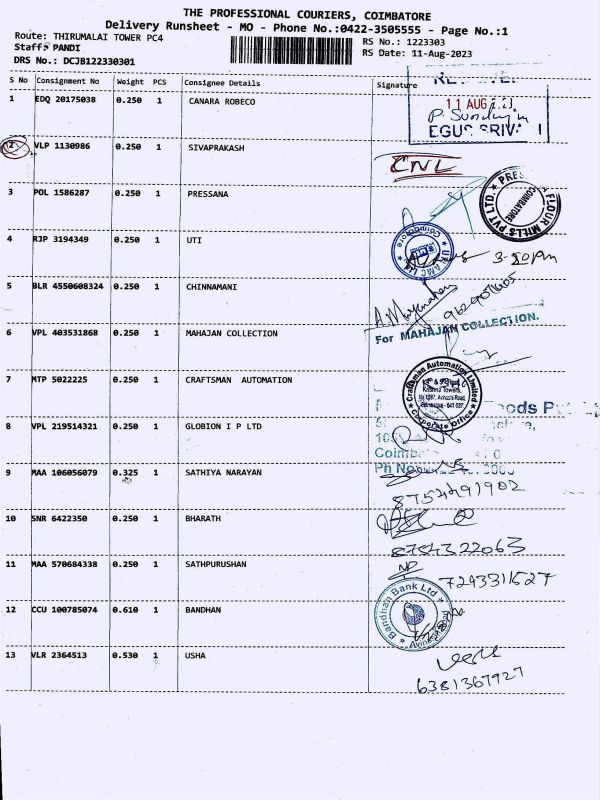 THE PROFESSIONAL COURIERS, COIMBATORE
Delivery Runsheet - MO - Phone No.:0422-3505555 - Page No.:1
Route: THIRUMALAI TOWER PC4
Staff: PANDI
DRS No.: DCJB122330301
RS No.: 1223303
RS Date: 11-Aug-2023
S No Consignment No Weight PCS Consignee Details Signature
1 EDQ 20175038 0.250 1 CANARA ROBECO
11 AUG
2 VLP 1130986 0.250 1 SIVAPRAKASH CNL
3 POL 1586287 0.250 1 PRESSANA
FLOUR MILLS PVT LTD. COIMBATORE
4 RJP 3194349 0.250 1 UTI
3-50pm
5 BLR 4550608324 0.250 1 CHINNAMANI
6 VPL 403531868 0.250 1 MAHAJAN COLLECTION
For MAHAJAN COLLECTION.
7 MTP 5022225 0.250 1 CRAFTSMAN AUTOMATION
Craftsman Automation Limited
Corporate Office
8 VPL 219514321 0.250 1 GLOBION I P LTD
9 MAA 106056079 0.325 1 SATHIYA NARAYAN
10 SNR 6422350 0.250 1 BHARATH
8754322063
11 MAA 570684338 0.250 1 SATHPURUSHAN
12 CCU 100785074 0.610 1 BANDHAN
Bandhan Bank Ltd
13 VLR 2364513 0.530 1 USHA
6381367927